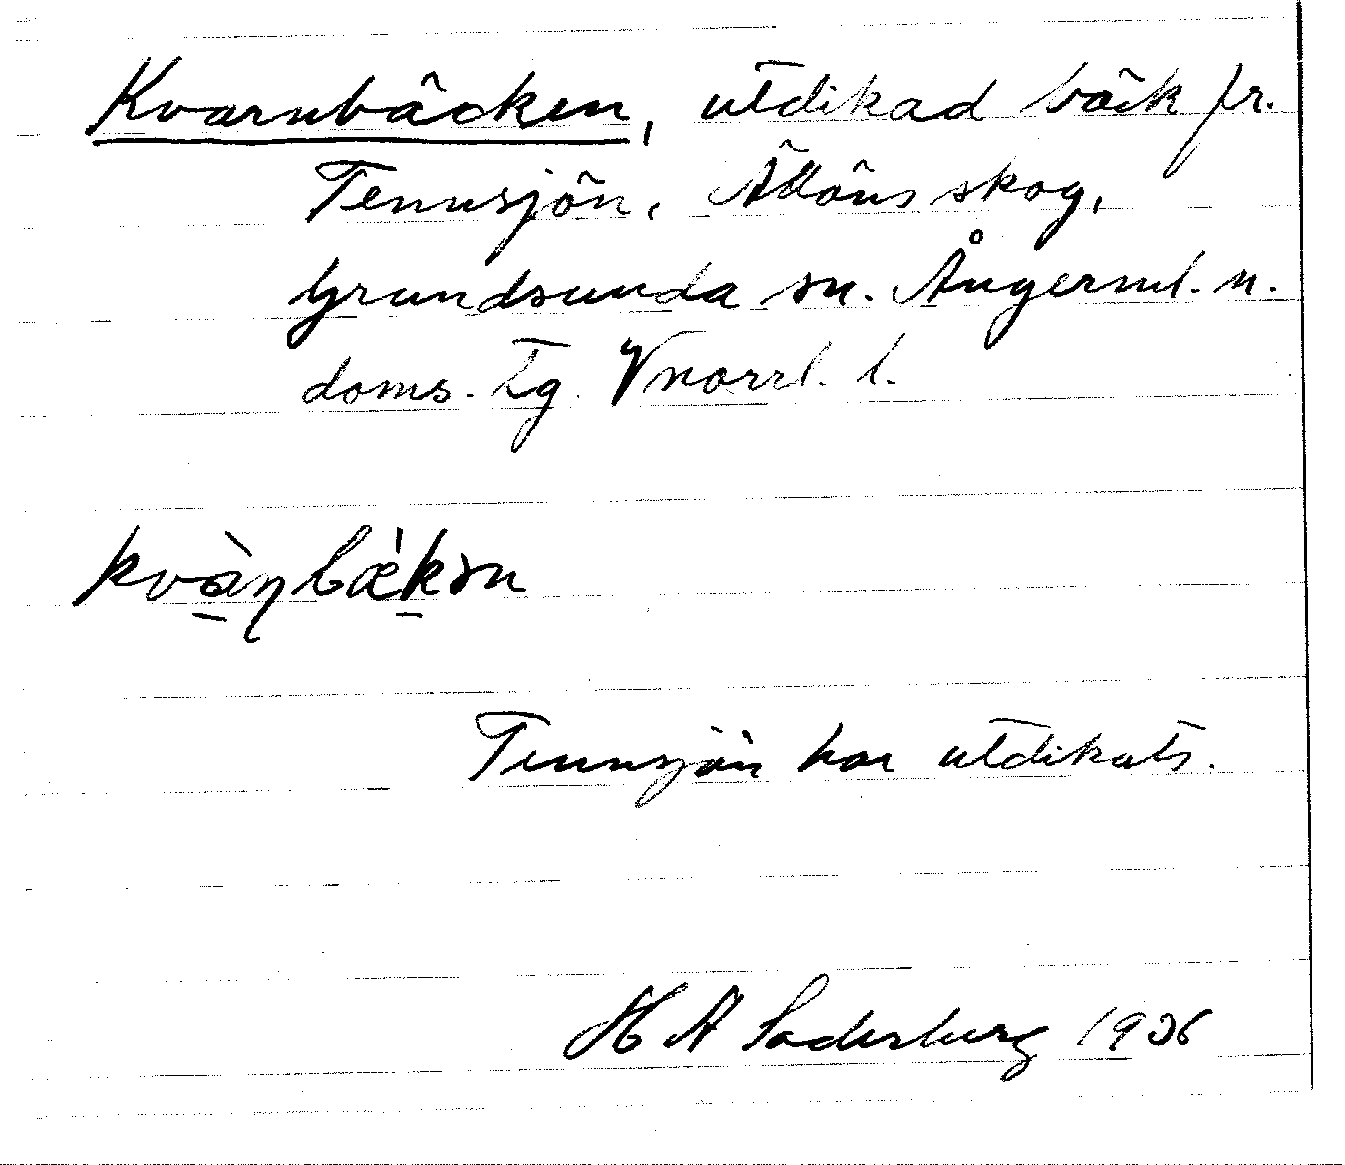 Kvarnbäcken, utdikad bäck fr.
Tennsjön, skog,
Grundsunda sn. Ångerml. n.
doms. tg. Vnorrl. l.
Tennsjön har utdikats.
H A Söderberg 1936